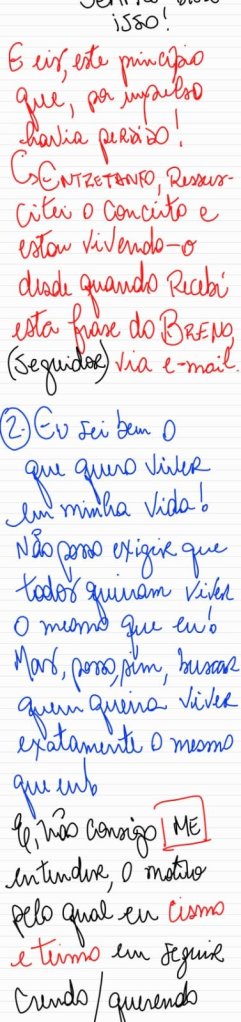 isso!
E eis, este princípio
que, por impulso
havia perdido!
↳ Entretanto, Ressus-
citei o conceito e
estou vivendo-o
desde quando Recebi
esta frase do BRENO,
(seguidor) via e-mail.
2. Eu sei bem o
que quero viver
em minha vida!
Não posso exigir que
todos queiram viver
o mesmo que eu!
Mas, posso, sim, buscar
quem queira viver
exatamente o mesmo
que eu!
E, não consigo ME
entender, o motivo
pelo qual eu cismo
e teimo em seguir
crendo/querendo